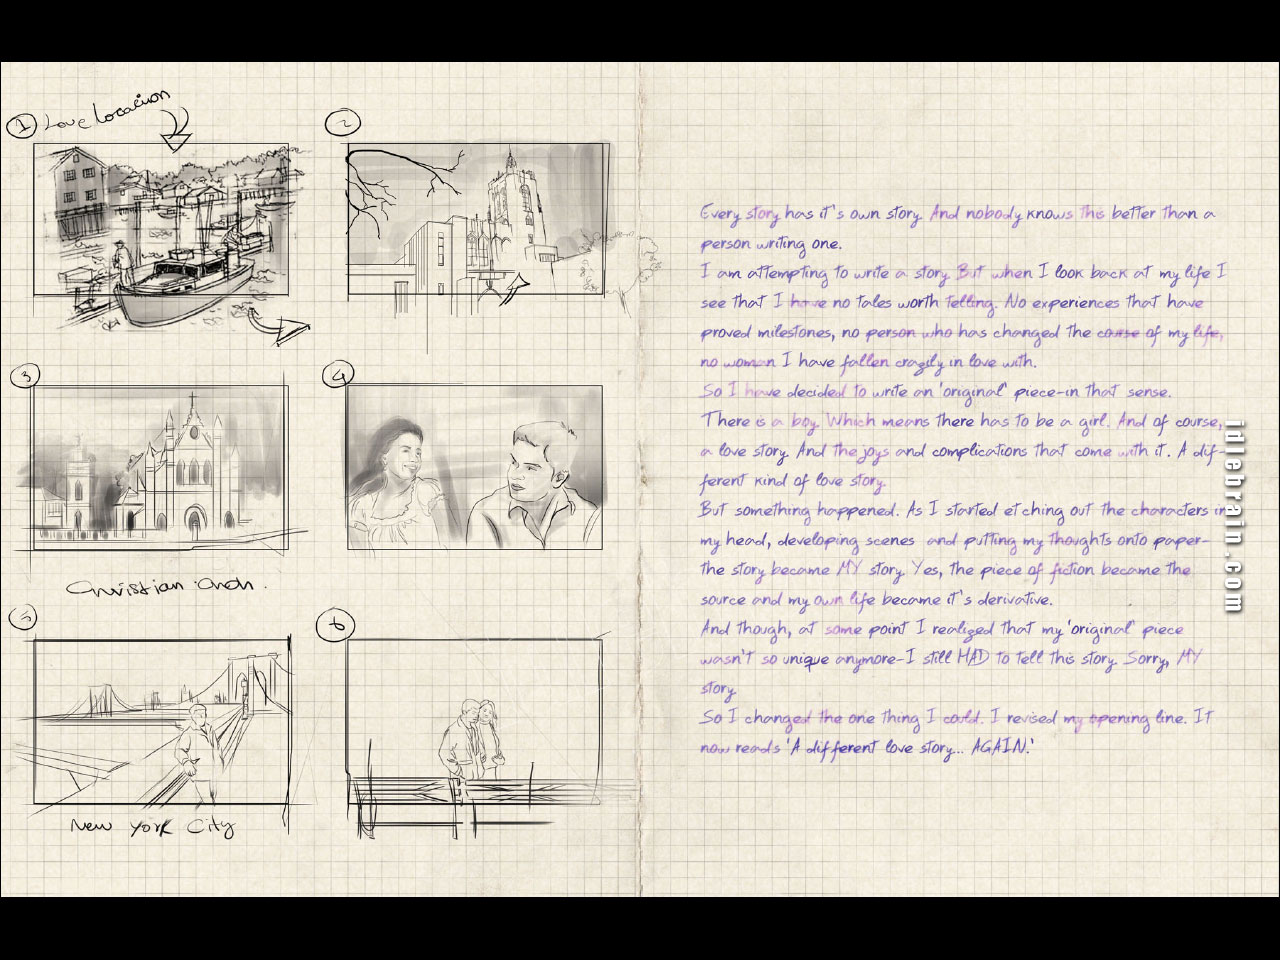 1 Love Location
2
3
4
Christian
5
6
New York City
Every story has it's own story. And nobody knows this better than a
person writing one.
I am attempting to write a story. But when I look back at my life I
see that I have no tales worth telling. No experiences that have
proved milestones, no person who has changed the course of my life,
no woman I have fallen crazily in love with.
So I have decided to write an 'original' piece-in that sense.
There is a boy. Which means there has to be a girl. And of course,
a love story. And the joys and complications that come with it. A dif-
ferent kind of love story.
But something happened. As I started etching out the characters in
my head, developing scenes and putting my thoughts onto paper-
the story became MY story. Yes, the piece of fiction became the
source and my own life became it's derivative.
And though, at some point I realized that my 'original' piece
wasn't so unique anymore-I still HAD to tell this story. Sorry, MY
story.
So I changed the one thing I could. I revised my opening line. It
now reads 'A different love story... AGAIN.'
idlebrain.com